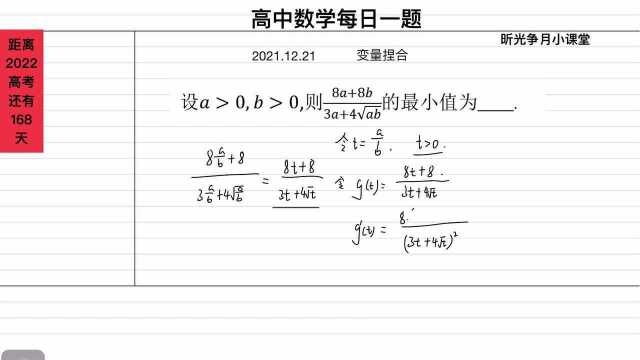 高中数学每日一题
距离
2022
高考
还有
168
天
昕光争月小课堂
2021.12.21 变量捏合
设a > 0, b > 0,则(8a+8b)/(3a+4√ab)的最小值为____.
(8 a/b + 8)/(3 a/b + 4√(a/b)) = (8t+8)/(3t+4√t)
令 t = a/b , t>0.
令 g(t) = (8t+8)/(3t+4√t)
g'(t) = 8·/(3t+4√t)²